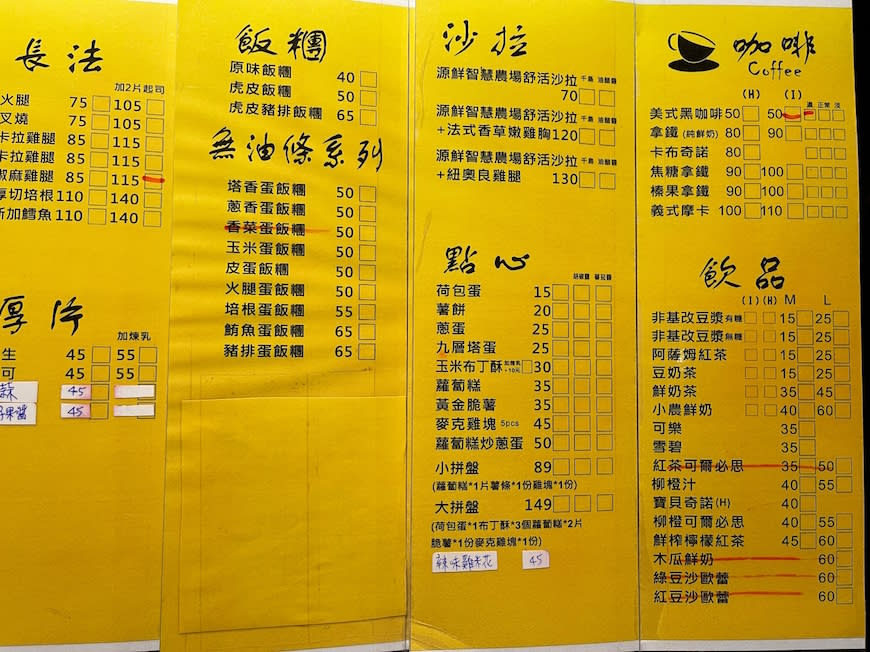 長法
加2片起司
火腿 75 105
叉燒 75 105
卡拉雞腿 85 115
卡拉雞腿 85 115
椒麻雞腿 85 115
厚切培根 110 140
新加鱈魚 110 140
厚片
加煉乳
生 45 55
可 45 55
蒜 45
果醬 45
飯糰
原味飯糰 40
虎皮飯糰 50
虎皮豬排飯糰 65
無油條系列
塔香蛋飯糰 50
蔥香蛋飯糰 50
香菜蛋飯糰 50
玉米蛋飯糰 50
皮蛋飯糰 50
火腿蛋飯糰 50
培根蛋飯糰 55
鮪魚蛋飯糰 65
豬排蛋飯糰 65
沙拉
源鮮智慧農場舒活沙拉 千島 油醋醬
70
源鮮智慧農場舒活沙拉 千島 油醋醬
+法式香草嫩雞胸 120
源鮮智慧農場舒活沙拉 千島 油醋醬
+紐奧良雞腿 130
點心
胡椒鹽 蕃茄醬
荷包蛋 15
薯餅 20
蔥蛋 25
九層塔蛋 25
玉米布丁酥 加煉乳+10元 30
蘿蔔糕 35
黃金脆薯 35
麥克雞塊 5pcs 45
蘿蔔糕炒蔥蛋 50
小拼盤 89
(蘿蔔糕*1片薯條*1份雞塊*1份)
大拼盤 149
(荷包蛋*1布丁酥*3個蘿蔔糕*2片
脆薯*1份麥克雞塊*1份)
辣味雞米花 45
咖啡
Coffee
(H) (I) 濃 正常 淡
美式黑咖啡 50 50
拿鐵 (純鮮奶) 80 90
卡布奇諾 80
焦糖拿鐵 90 100
榛果拿鐵 90 100
義式摩卡 100 110
飲品
(I) (H) M L
非基改豆漿 有糖 15 25
非基改豆漿 無糖 15 25
阿薩姆紅茶 15 25
豆奶茶 15 25
鮮奶茶 35 45
小農鮮奶 40 60
可樂 35
雪碧 35
紅茶可爾必思 35 50
柳橙汁 40 55
寶貝奇諾(H) 40
柳橙可爾必思 40 55
鮮榨檸檬紅茶 45 60
木瓜鮮奶 60
綠豆沙歐蕾 60
紅豆沙歐蕾 60